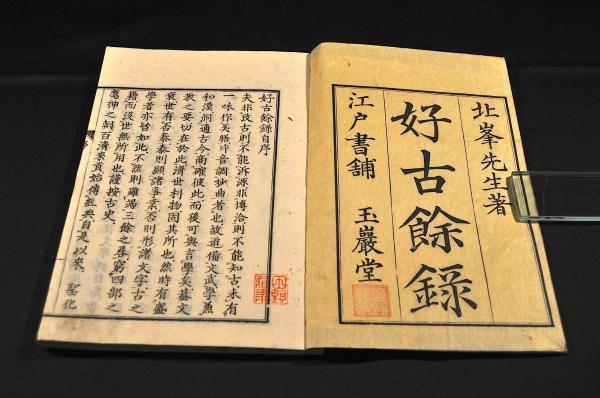 北峯先生著
好古餘錄
江戸書舖 玉巖堂
好古餘錄自序
夫非攷古則不能泝源非博洽則不能知古未有
一味作美膳片音調妙曲者也故道備文武學兼
和漢洞通古今商確彼此而後可與言學矣蓋文
敎之要切在於此濟世利物因其所也然時有盛
衰世有否泰泰則顯諸事業否則形諸文字古之
學者亦皆如此不然則雖竭三餘之晷窮四部之
籍而沒世無所用也謹按古史
應神之朝百濟來貢始傳經典自是以來 聖化